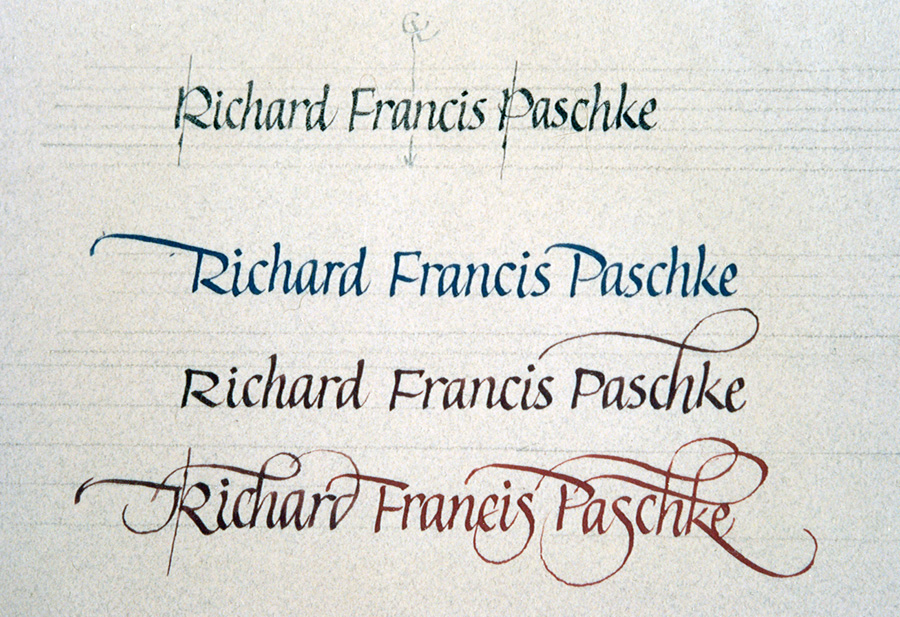 Richard Francis Paschke
Richard Francis Paschke
Richard Francis Paschke
Richard Francis Paschke